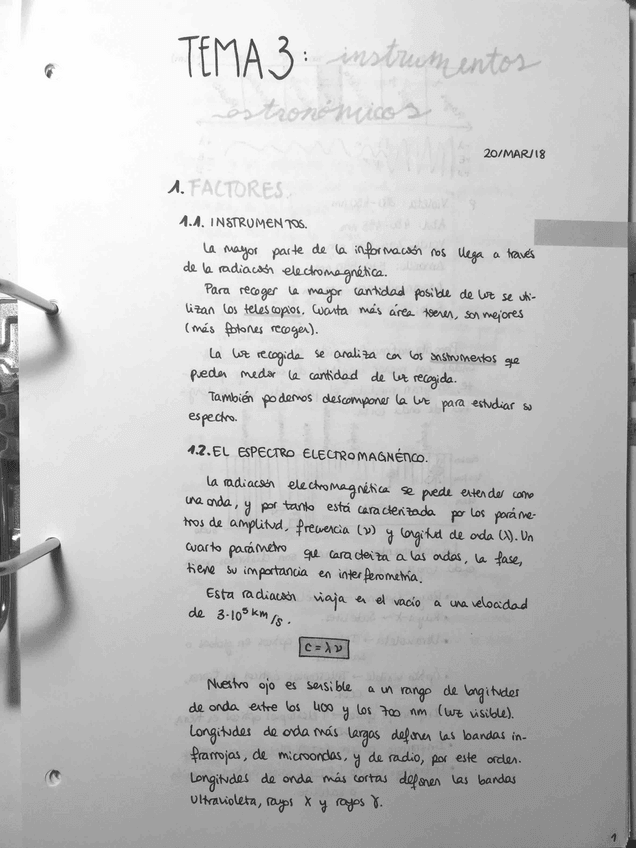 TEMA 3: instrumentos
astronómicos
20/MAR/18
1. FACTORES.
1.1. INSTRUMENTOS.
La mayor parte de la información nos llega a través
de la radiación electromagnética.
Para recoger la mayor cantidad posible de luz se uti-
lizan los telescopios. Cuanta más área tienen, son mejores
(más fotones recoger).
La luz recogida se analiza con los instrumentos que
pueden medir la cantidad de luz recogida.
También podemos descomponer la luz para estudiar su
espectro.
1.2. EL ESPECTRO ELECTROMAGNÉTICO.
La radiación electromagnética se puede entender como
una onda, y por tanto está caracterizada por los paráme-
tros de amplitud, frecuencia (ν) y longitud de onda (λ). Un
cuarto parámetro que caracteriza a las ondas, la fase,
tiene su importancia en interferometría.
Esta radiación viaja en el vacío a una velocidad
de 3·10⁵ km/s.
c = λν
Nuestro ojo es sensible a un rango de longitudes
de onda entre los 400 y los 700 nm (luz visible).
Longitudes de onda más largas definen las bandas in-
frarrojas, de microondas, y de radio, por este orden.
Longitudes de onda más cortas definen las bandas
ultravioleta, rayos X y rayos γ.
1